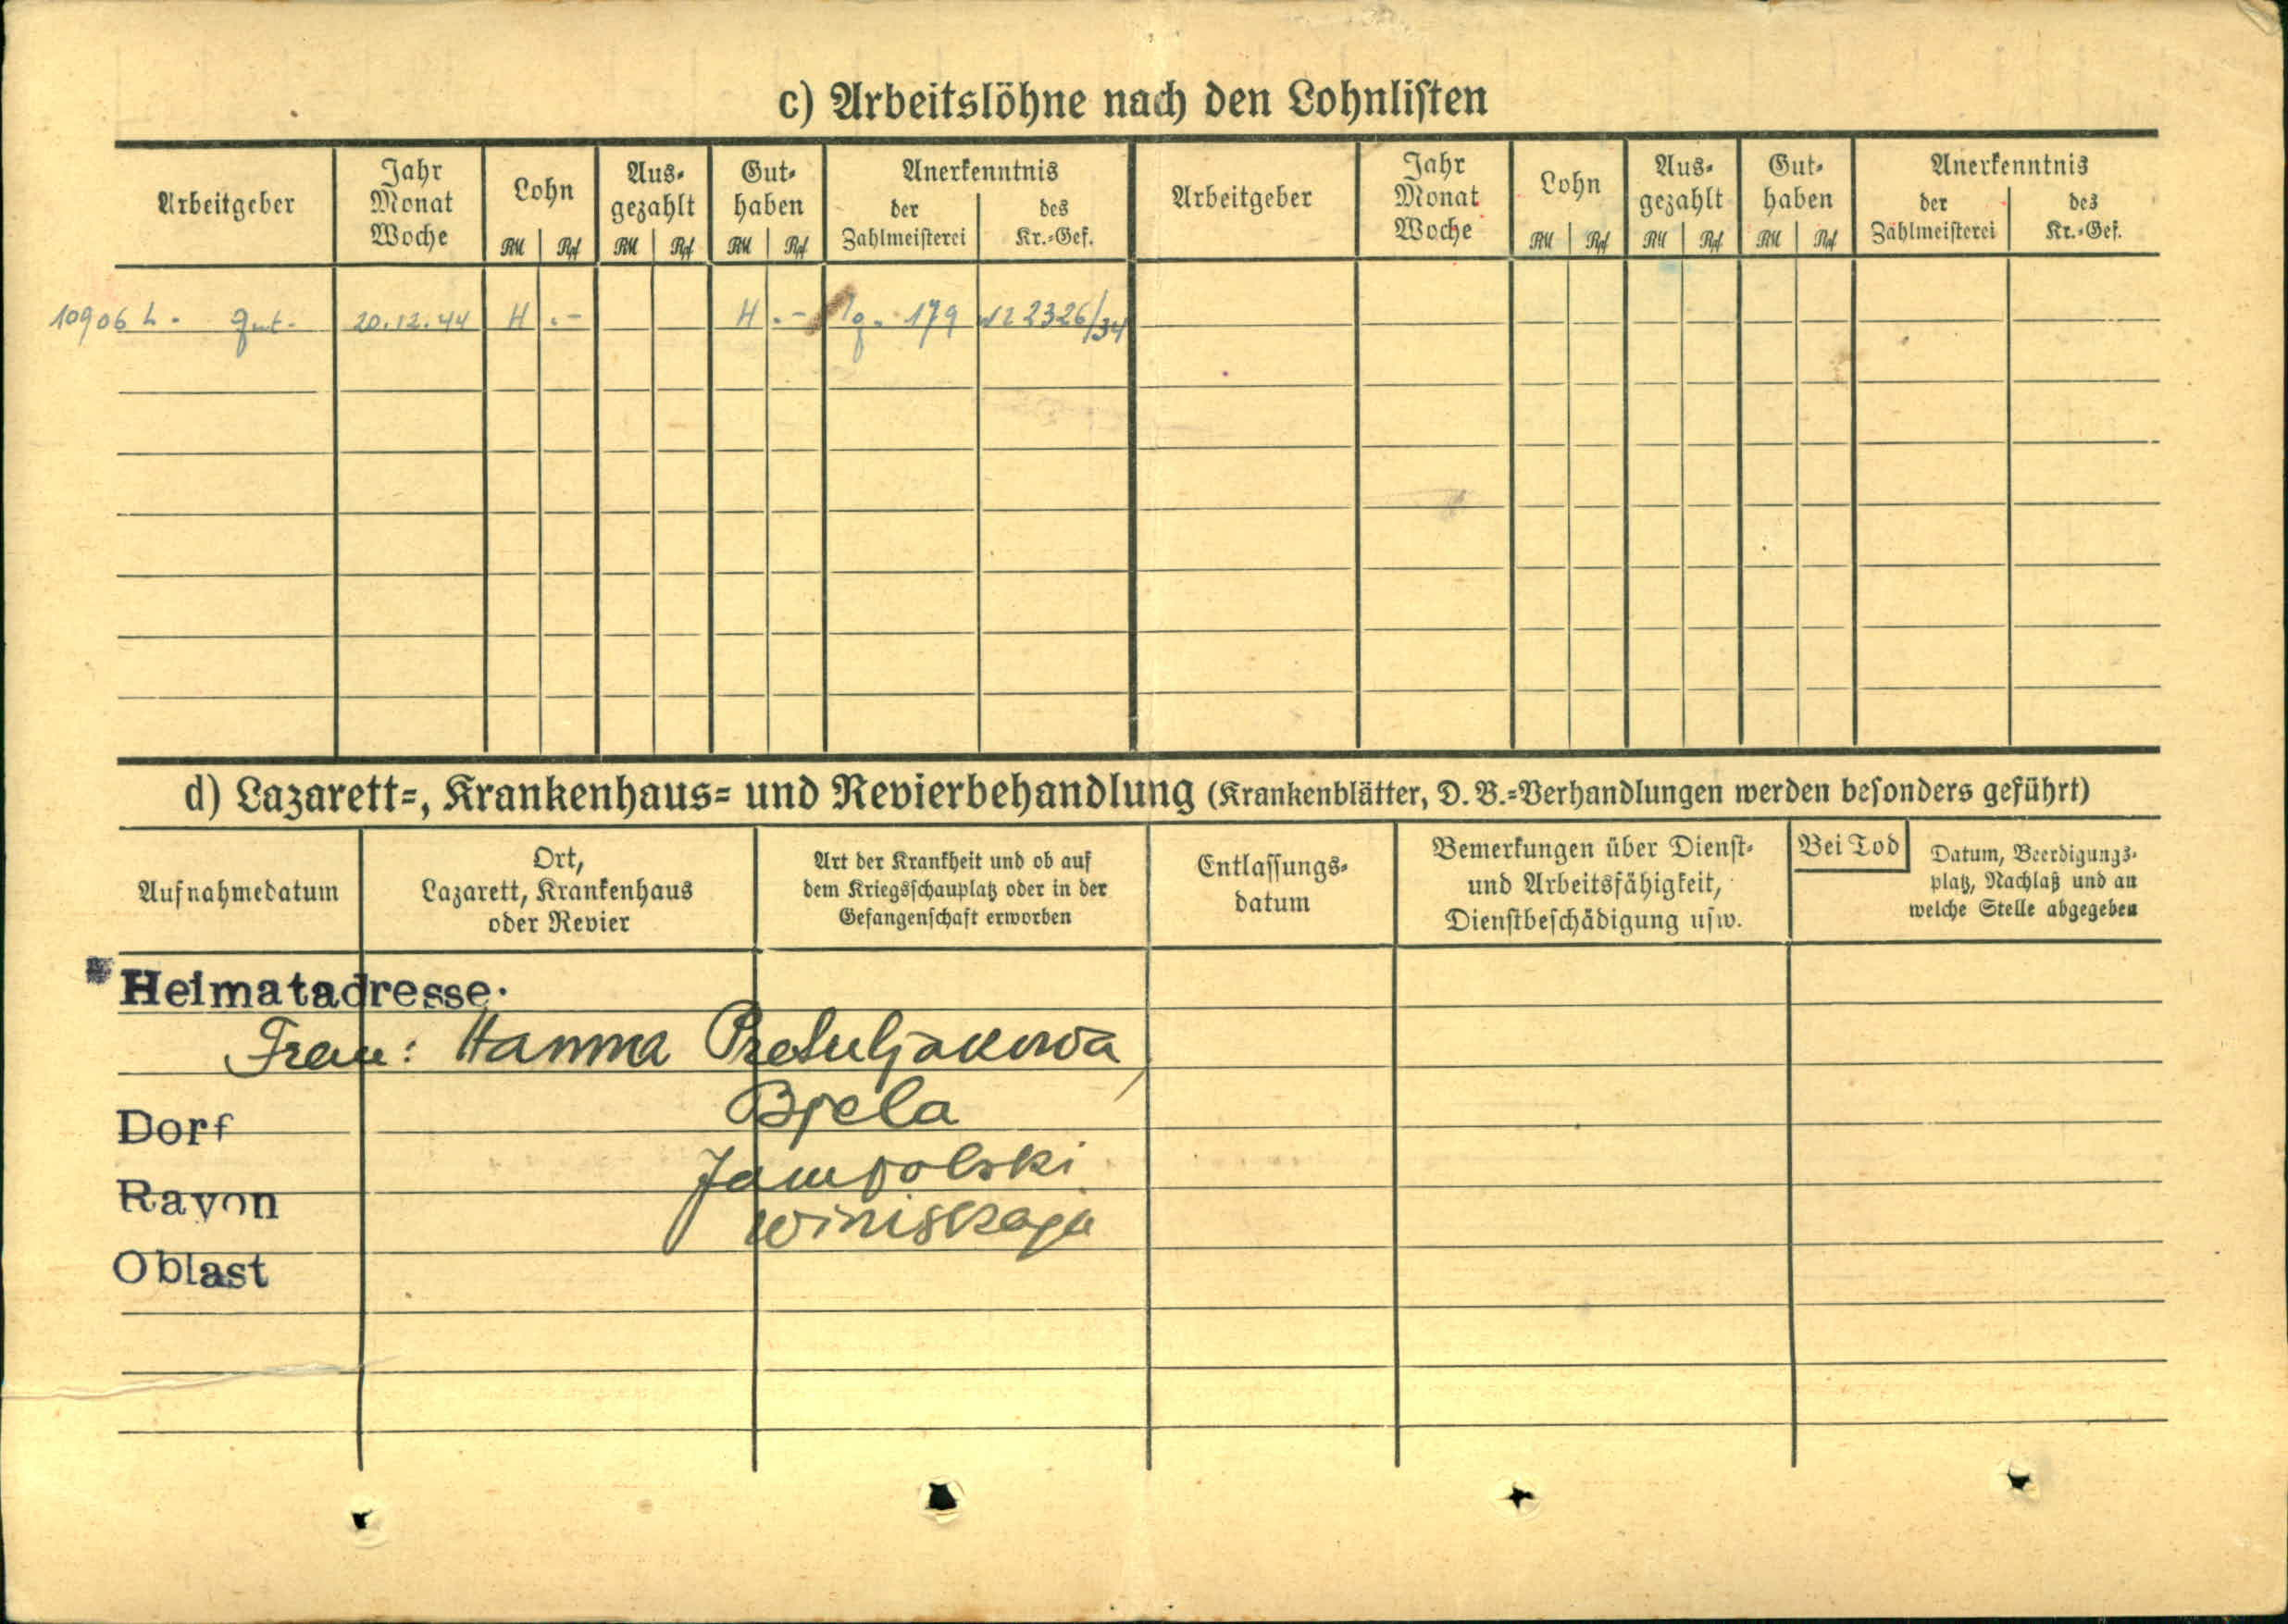 c) Arbeitslöhne nach den Lohnlisten
Arbeitgeber Jahr Monat Woche Lohn RM Rpf Aus-gezahlt RM Rpf Gut-haben RM Rpf Anerkenntnis der Zahlmeisterei des Kr.-Gef. Arbeitgeber Jahr Monat Woche Lohn RM Rpf Aus-gezahlt RM Rpf Gut-haben RM Rpf Anerkenntnis der Zahlmeisterei des Kr.-Gef.
10906 L. 20.12.44 H .- H .- 179 2326/34
d) Lazarett-, Krankenhaus- und Revierbehandlung (Krankenblätter, D. B.-Verhandlungen werden besonders geführt)
Aufnahmedatum Ort, Lazarett, Krankenhaus oder Revier Art der Krankheit und ob auf dem Kriegsschauplatz oder in der Gefangenschaft erworben Entlassungs-datum Bemerkungen über Dienst- und Arbeitsfähigkeit, Dienstbeschädigung usw. Bei Tod Datum, Beerdigungs-platz, Nachlaß und an welche Stelle abgegeben
Heimatadresse.
Frau: Hanna
Dorf Bjela
Rayon Jampolski
Oblast Winiskaja